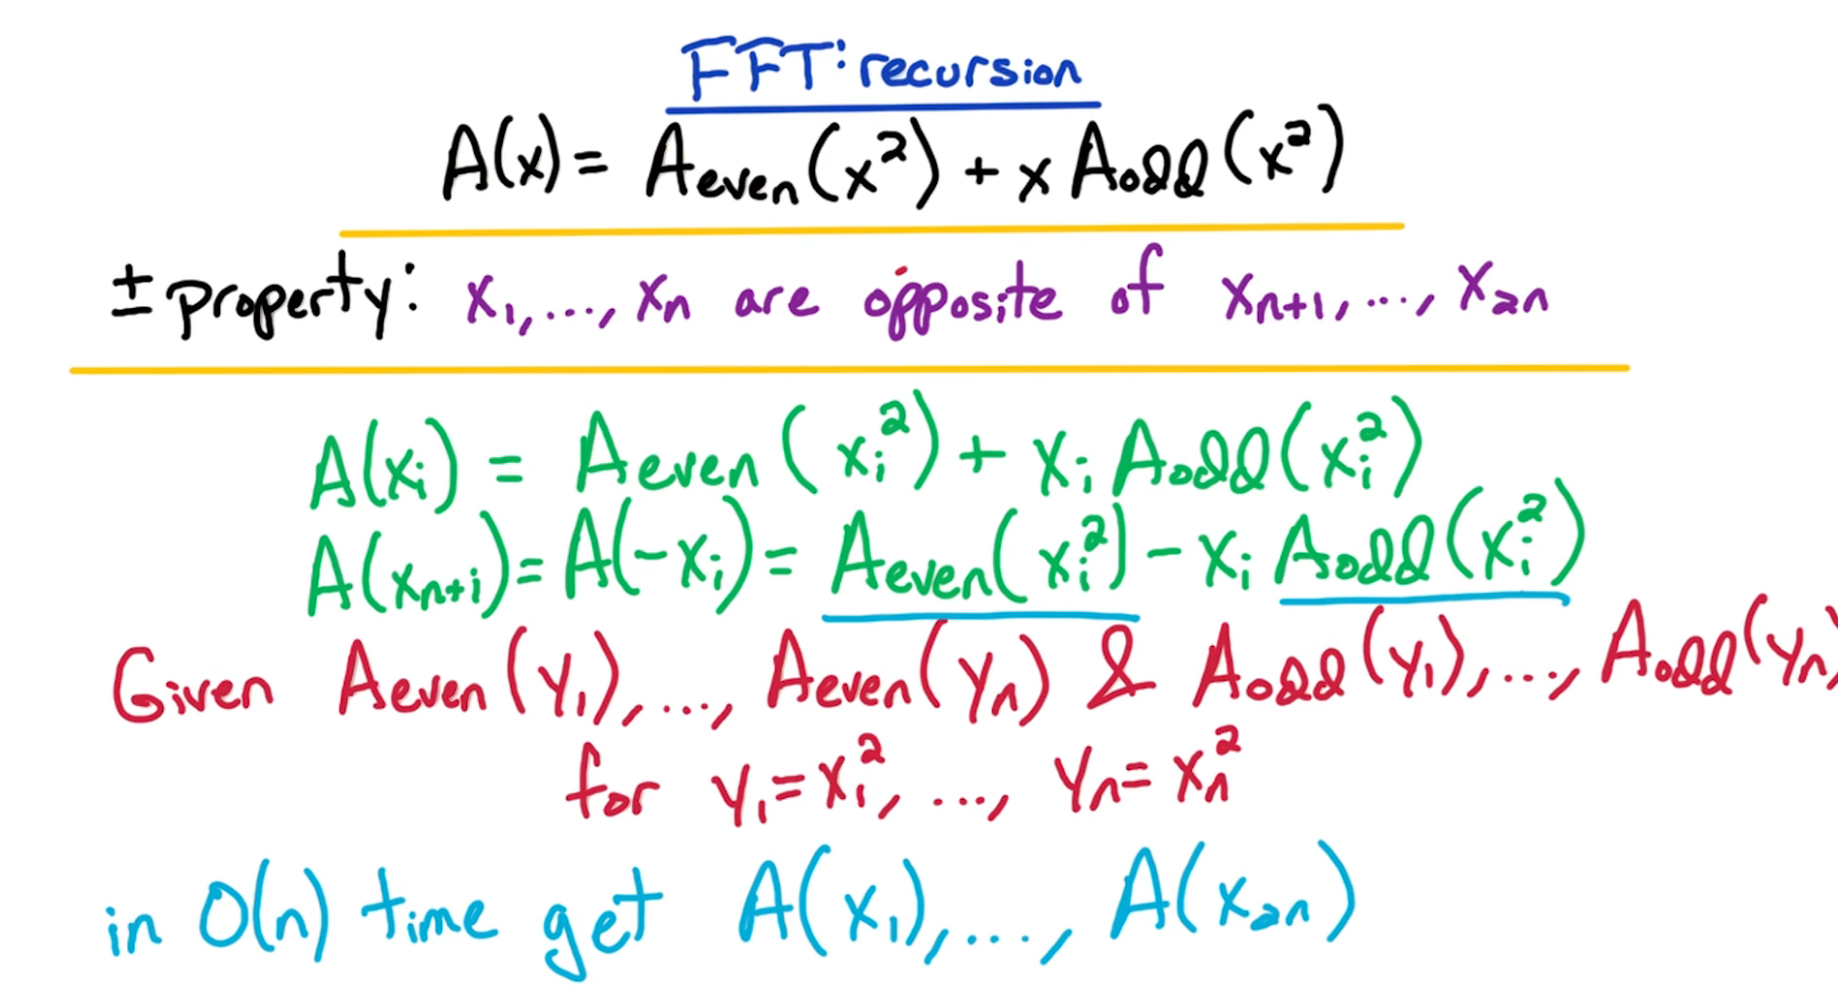 FFT: recursion
A(x) = A_even(x²) + x A_odd(x²)
± property: x₁, ..., xₙ are opposite of xₙ₊₁, ..., x₂ₙ
A(xᵢ) = A_even(xᵢ²) + xᵢ A_odd(xᵢ²)
A(xₙ₊ᵢ) = A(-xᵢ) = A_even(xᵢ²) - xᵢ A_odd(xᵢ²)
Given A_even(y₁), ..., A_even(yₙ) & A_odd(y₁), ..., A_odd(yₙ)
for y₁ = x₁², ..., yₙ = xₙ²
in O(n) time get A(x₁), ..., A(x₂ₙ)